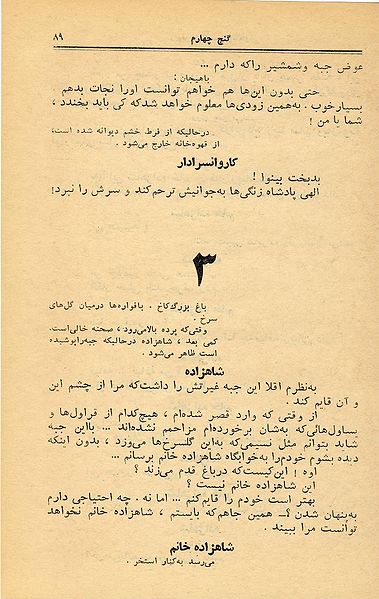 گنج چهارم ۸۹
عوض جبه وشمشیر راکه دارم ...
باهیجان :
حتی بدون این‌ها هم خواهم توانست اورا نجات بدهم .
بسیارخوب . به‌همین زودی‌ها معلوم خواهد شدکه کی باید بخندد ،
شما یا من !
درحالیکه از فرط خشم دیوانه شده است،
از قهوه‌خانه خارج می‌شود .
کاروانسرادار
بدبخت بینوا !
الهی پادشاه زنگی‌ها به‌جوانیش ترحم‌کند و سرش را نبرد!
۳
باغ بزرگ‌کاخ . بافواره‌ها درمیان گل‌های
سرخ .
وقتی‌که پرده بالامی‌رود ، صحنه خالی‌است.
کمی بعد ، شاهزاده درحالیکه جبه‌راپوشیده
است ظاهر می‌شود .
شاهزاده
به‌نظرم اقلا این جبه غیرتش را داشت‌که مرا از چشم این
و آن قایم کند .
از وقتی که وارد قصر شده‌ام ، هیچ‌کدام از قراول‌ها و
یساول‌هائی‌که به‌شان برخورده‌ام مزاحمم نشده‌اند ... بااین جبه
شاید بتوانم مثل نسیمی‌که به‌این گلسرخ‌ها می‌وزد ، بدون اینکه
دیده بشوم خودم‌را به‌خوابگاه شاهزاده خانم برسانم ...
اوه ! این‌کیست‌که درباغ قدم می‌زند ؟
این شاهزاده خانم نیست ؟
بهتر است خودم را قایم‌کنم ... اما نه . چه احتیاجی دارم
به‌پنهان شدن ؟ــ همین جاهم‌که بایستم ، شاهزاده خانم نخواهد
توانست مرا ببیند .
شاهزاده خانم
می‌رسد به‌کنار استخر .